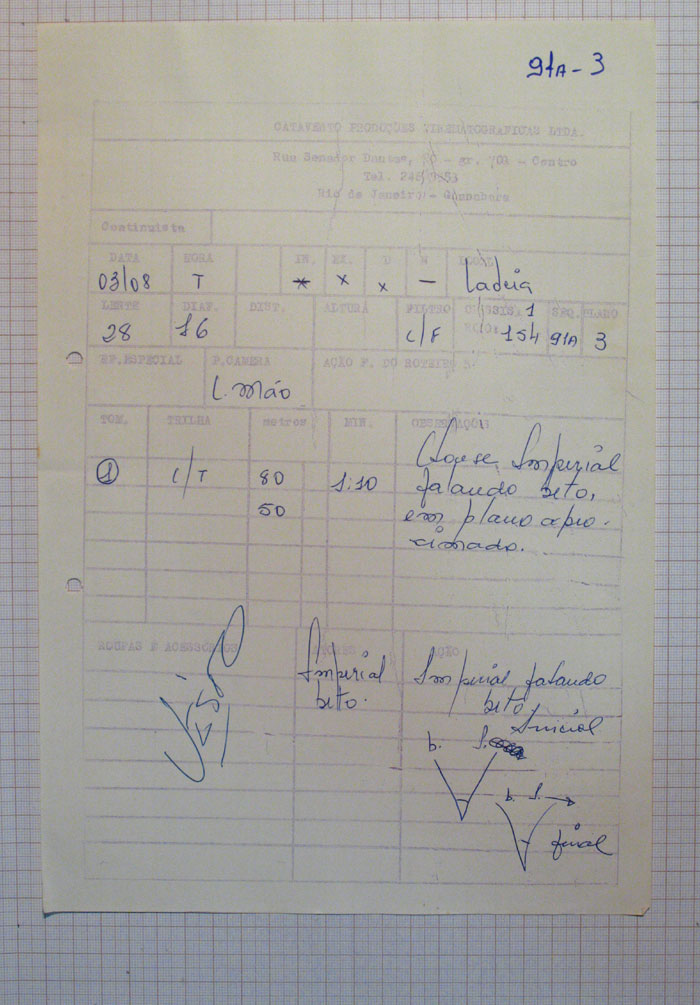 91A - 3
CATAVENTO PRODUÇÕES CINEMATOGRAFICAS LTDA.
Rua Senador Dantas, - gr. 701 - Centro
Tel.
Rio de Janeiro - Guanabara
Continuista
DATA HORA IN. EX. D N LOCAL
03/08 T x x x —
LENTE DIAF. DIST. ALTURA FILTRO CHASSIS: 1 SEQ. PLANO
28 16 C/F ROLO: 154 91A 3
EF. ESPECIAL P. CAMERA AÇÃO F. DO ROTEIRO
C. mão
TOM. TRILHA metros MIN. OBSERVAÇÕES
1 C/T 80 1:10 Close, Imperial
50 falando beto,
em plano apro-
ximado.
ROUPAS E ACESSÓRIOS ATORES AÇÃO
Imperial Imperial falando
beto. beto,
Inicial
b. I.
b. I.
final